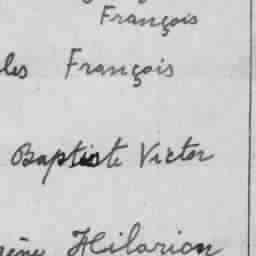 François
les François
Baptiste Victor
Hilarion